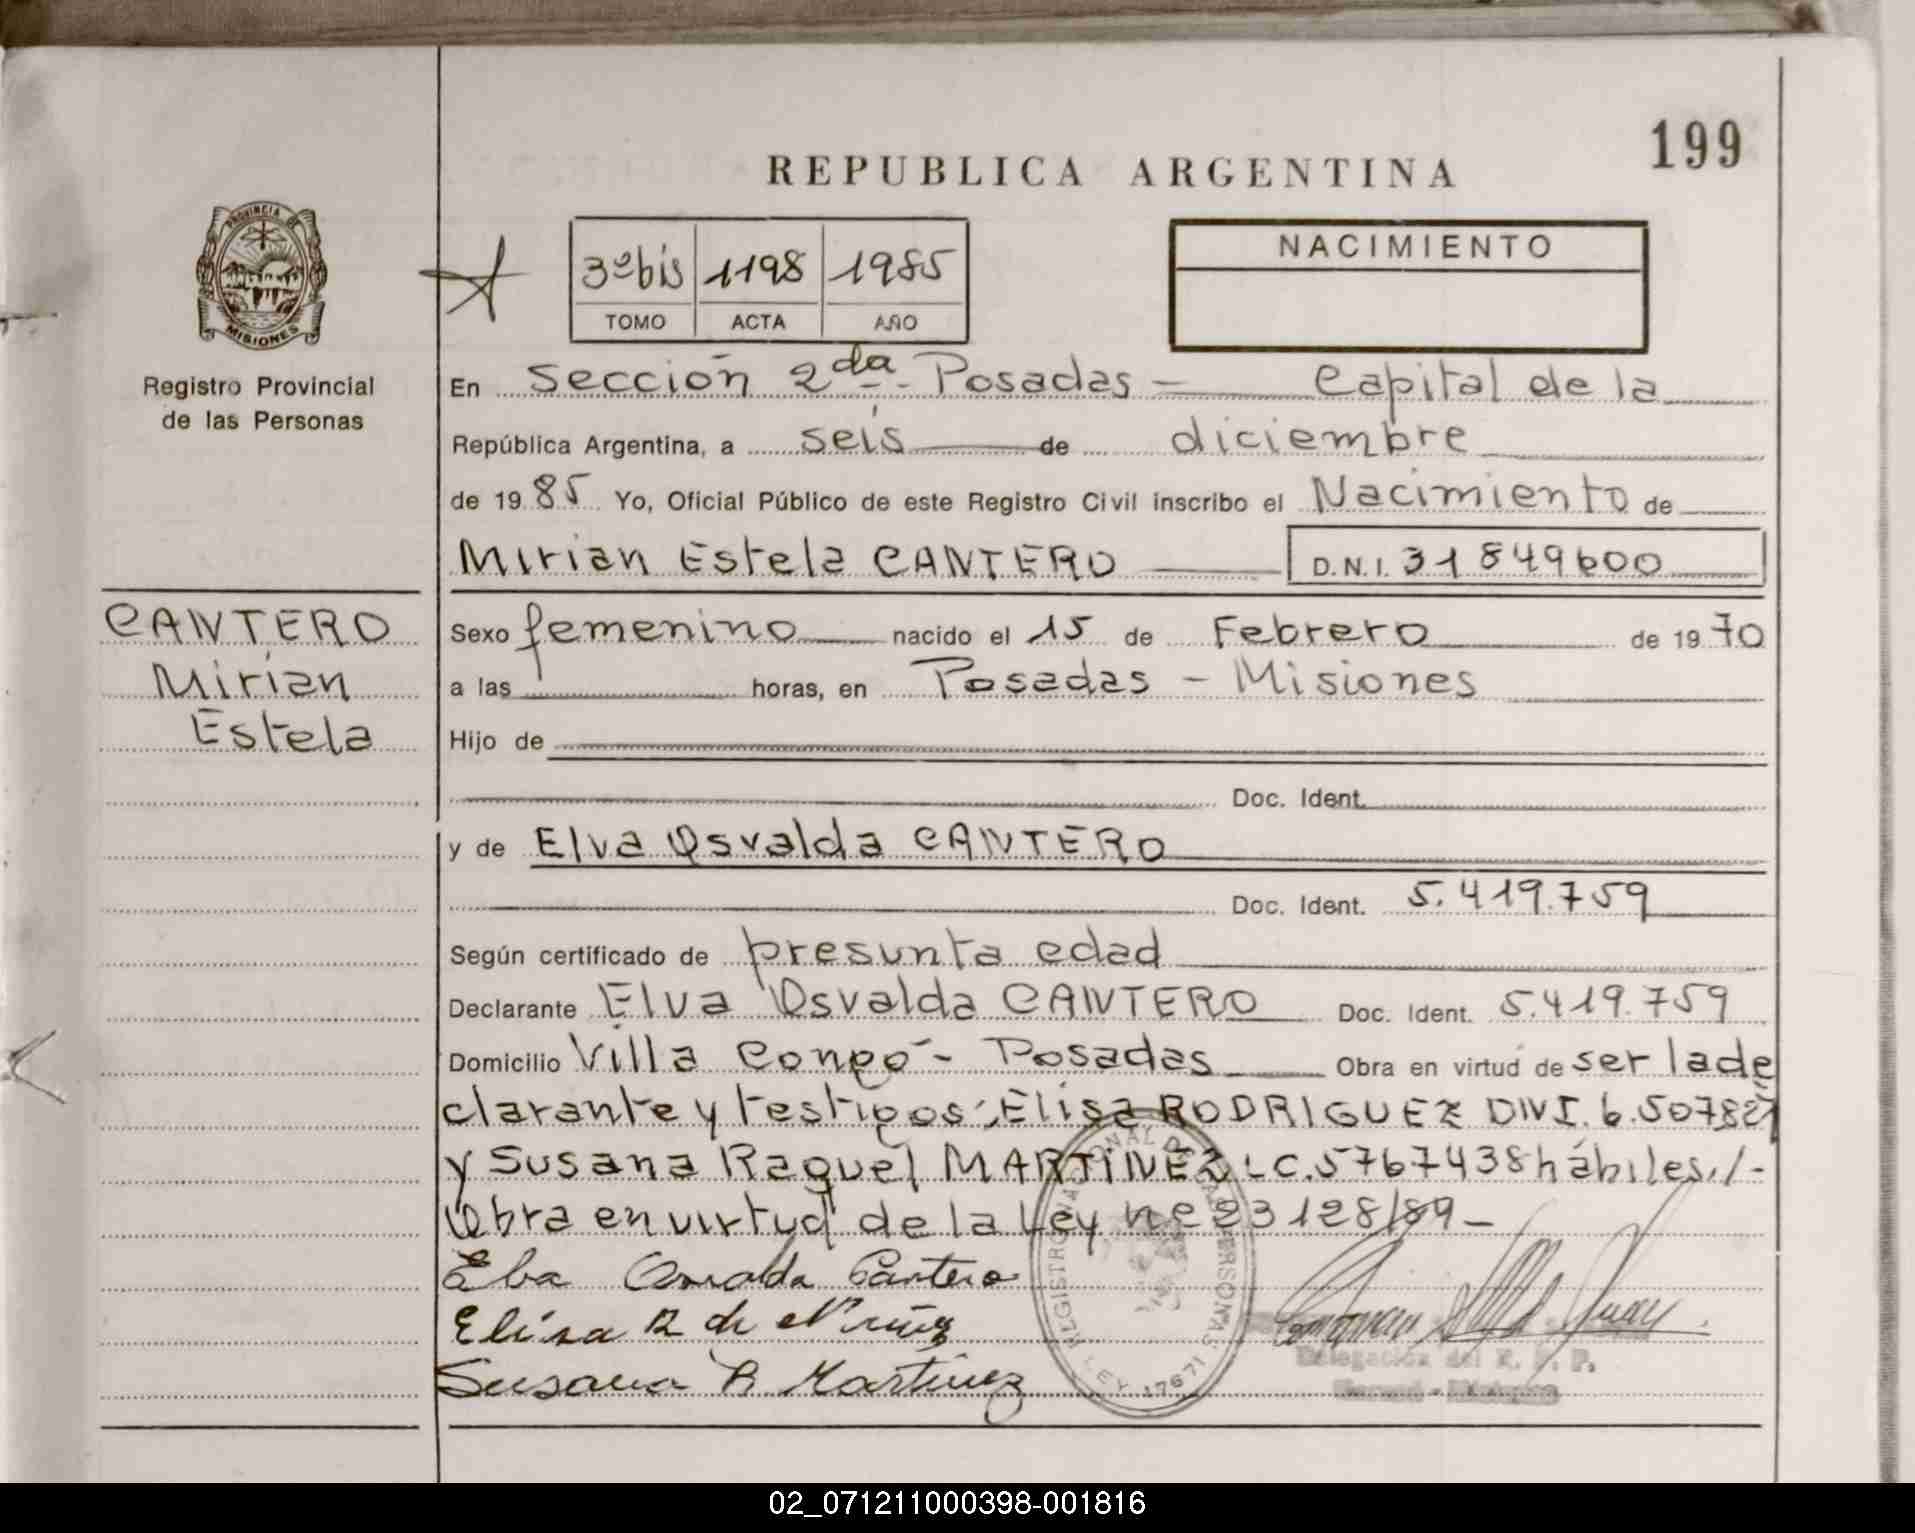 199
REPUBLICA ARGENTINA
PROVINCIA DE
MISIONES
Registro Provincial
de las Personas
3º bis 1198 1985
TOMO ACTA AÑO
NACIMIENTO
En Sección 2da Posadas - Capital de la
República Argentina, a seis de diciembre
de 1985 Yo, Oficial Público de este Registro Civil inscribo el Nacimiento de
Mirian Estela CANTERO D.N.I. 31849600
CANTERO
Mirian
Estela
Sexo femenino nacido el 15 de Febrero de 1970
a las horas, en Posadas - Misiones
Hijo de
Doc. Ident.
y de Elva Osvalda CANTERO
Doc. Ident. 5.419.759
Según certificado de presunta edad
Declarante Elva Osvalda CANTERO Doc. Ident. 5.419.759
Domicilio Villa Congo - Posadas Obra en virtud de ser la de
clarante y testigos: Elisa RODRIGUEZ DNI. 6.50782
y Susana Raquel MARTINEZ LC. 5767438 hábiles./-
Obra en virtud de la Ley nº 23128/89-
Elba Osvalda Cantero
Elisa R de Nuñez
Susana R Martinez
REGISTRO NACIONAL DE LAS PERSONAS
LEY 17671
Delegación del R. P. P.
02_071211000398-001816